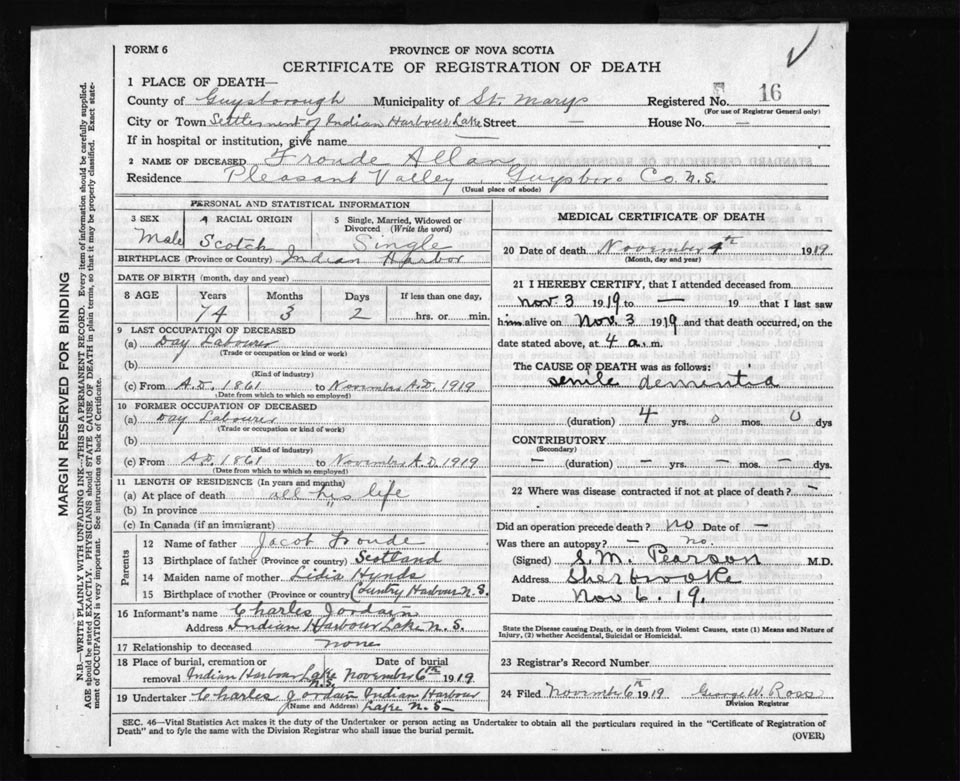 FORM 6
PROVINCE OF NOVA SCOTIA
CERTIFICATE OF REGISTRATION OF DEATH
1 PLACE OF DEATH—
County of Guysborough Municipality of St. Marys Registered No. 16
(For use of Registrar General only)
City or Town Settlement of Indian Harbour Lake Street — House No. —
If in hospital or institution, give name —
2 NAME OF DECEASED Fronde Allan
Residence Pleasant Valley, Guysboro Co. N.S.
(Usual place of abode)
PERSONAL AND STATISTICAL INFORMATION
3 SEX Male
4 RACIAL ORIGIN Scotch
5 Single, Married, Widowed or Divorced (Write the word) Single
BIRTHPLACE (Province or Country) Indian Harbor
DATE OF BIRTH (month, day and year)
8 AGE Years Months Days If less than one day,
74 3 2 hrs. or min.
9 LAST OCCUPATION OF DECEASED
(a) Day Labourer
(Trade or occupation or kind or work)
(b)
(Kind of industry)
(c) From A.D. 1861 to November A.D. 1919
(Date from which to which so employed)
10 FORMER OCCUPATION OF DECEASED
(a) Day Labourer
(Trade or occupation or kind of work)
(b)
(Kind of industry)
(c) From A.D. 1861 to November A.D. 1919
(Date from which to which so employed)
11 LENGTH OF RESIDENCE (In years and months)
(a) At place of death all his life
(b) In province "
(c) In Canada (if an immigrant)
Parents
12 Name of father Jacob Fronde
13 Birthplace of father (Province or country) Scotland
14 Maiden name of mother Lidia Hynds
15 Birthplace of mother (Province or country) Country Harbour N.S.
16 Informant's name Charles Jordain
Address Indian Harbour Lake N.S.
17 Relationship to deceased none
18 Place of burial, cremation or removal Indian Harbour Lake N.S. Date of burial November 6th 1919
19 Undertaker Charles Jordain Indian Harbour
(Name and Address) Lake N.S.
MEDICAL CERTIFICATE OF DEATH
20 Date of death November 4th 1919
(Month, day and year)
21 I HEREBY CERTIFY, that I attended deceased from
Nov. 3 1919 to — 19 that I last saw
him alive on Nov. 3 1919 and that death occurred, on the
date stated above, at 4 a.m.
The CAUSE OF DEATH was as follows:
senile dementia
(duration) 4 yrs. 0 mos. 0 dys
CONTRIBUTORY
(Secondary)
— (duration) — yrs. — mos. — dys.
22 Where was disease contracted if not at place of death? —
Did an operation precede death? no Date of —
Was there an autopsy? — no.
(Signed) S. M. Pearson M.D.
Address Sherbrooke
Date Nov 6. 19.
State the Disease causing Death, or in death from Violent Causes, state (1) Means and Nature of
Injury, (2) whether Accidental, Suicidal or Homicidal.
23 Registrar's Record Number
24 Filed November 6th 1919 George W. Ross
Division Registrar
SEC. 46—Vital Statistics Act makes it the duty of the Undertaker or person acting as Undertaker to obtain all the particulars required in the "Certificate of Registration of
Death" and to fyle the same with the Division Registrar who shall issue the burial permit.
(OVER)
MARGIN RESERVED FOR BINDING
N.B.—WRITE PLAINLY WITH UNFADING INK—THIS IS A PERMANENT RECORD. Every item of information should be carefully supplied.
AGE should be stated EXACTLY. PHYSICIANS should STATE CAUSE OF DEATH in plain terms, so that it may be properly classified. Exact state-
ment of OCCUPATION is very important. See instructions on back of Certificate.